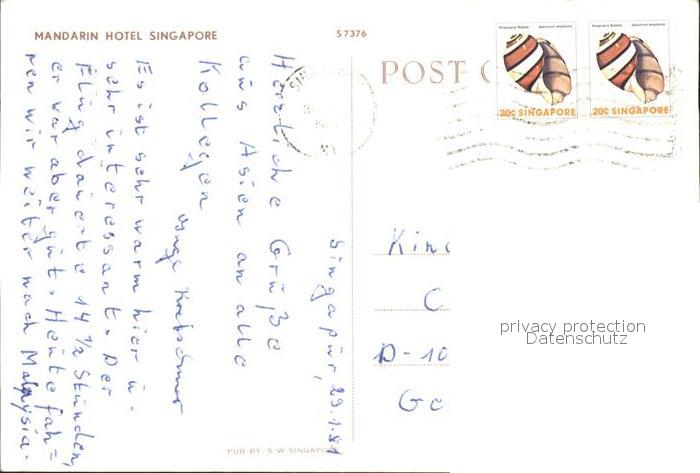 MANDARIN HOTEL SINGAPORE
S 7376
POST C
20¢ SINGAPORE
20¢ SINGAPORE
Singapur, 29.1.81
Herzliche Grüße
aus Asien an alle
Kollegen
Es ist sehr warm hier u.
sehr interessant. Der
Flug dauerte 14 1/2 Stunden,
er war aber gut. Heute fah=
ren wir weiter nach Malaysia.
Kin
C
D-10
Ge
privacy protection
Datenschutz
PUB BY. S. W. SINGAPO